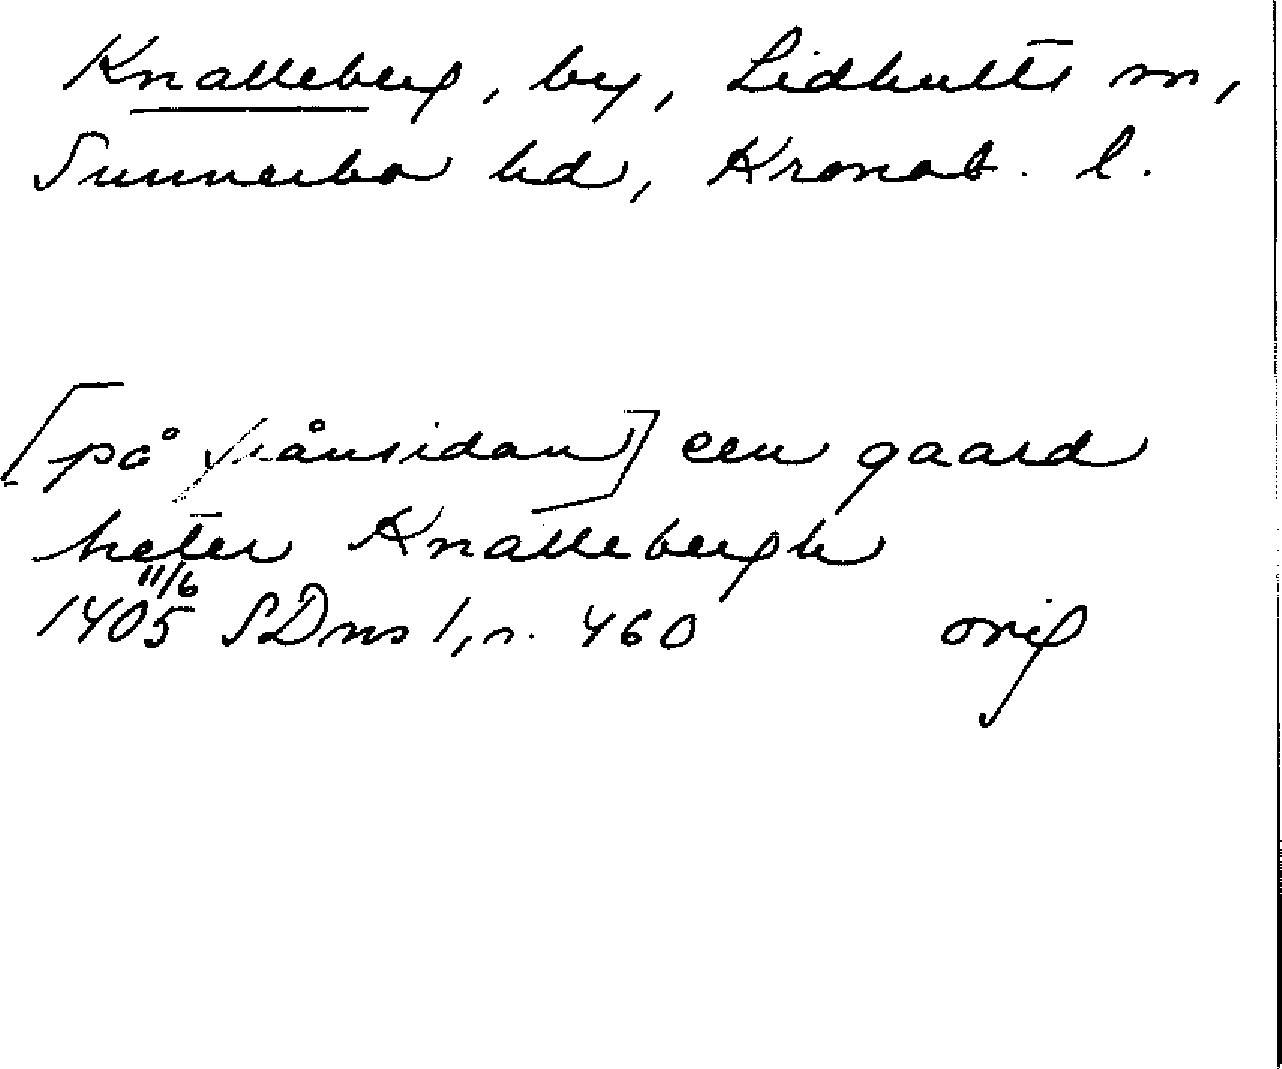 Knalleberg, by, Lidhults sn,
Sunnerbo hd, Kronob. l.
[på frånsidan] een gaard
heter Knallebergh
11/6
1405 SDns 1, s. 460 orig